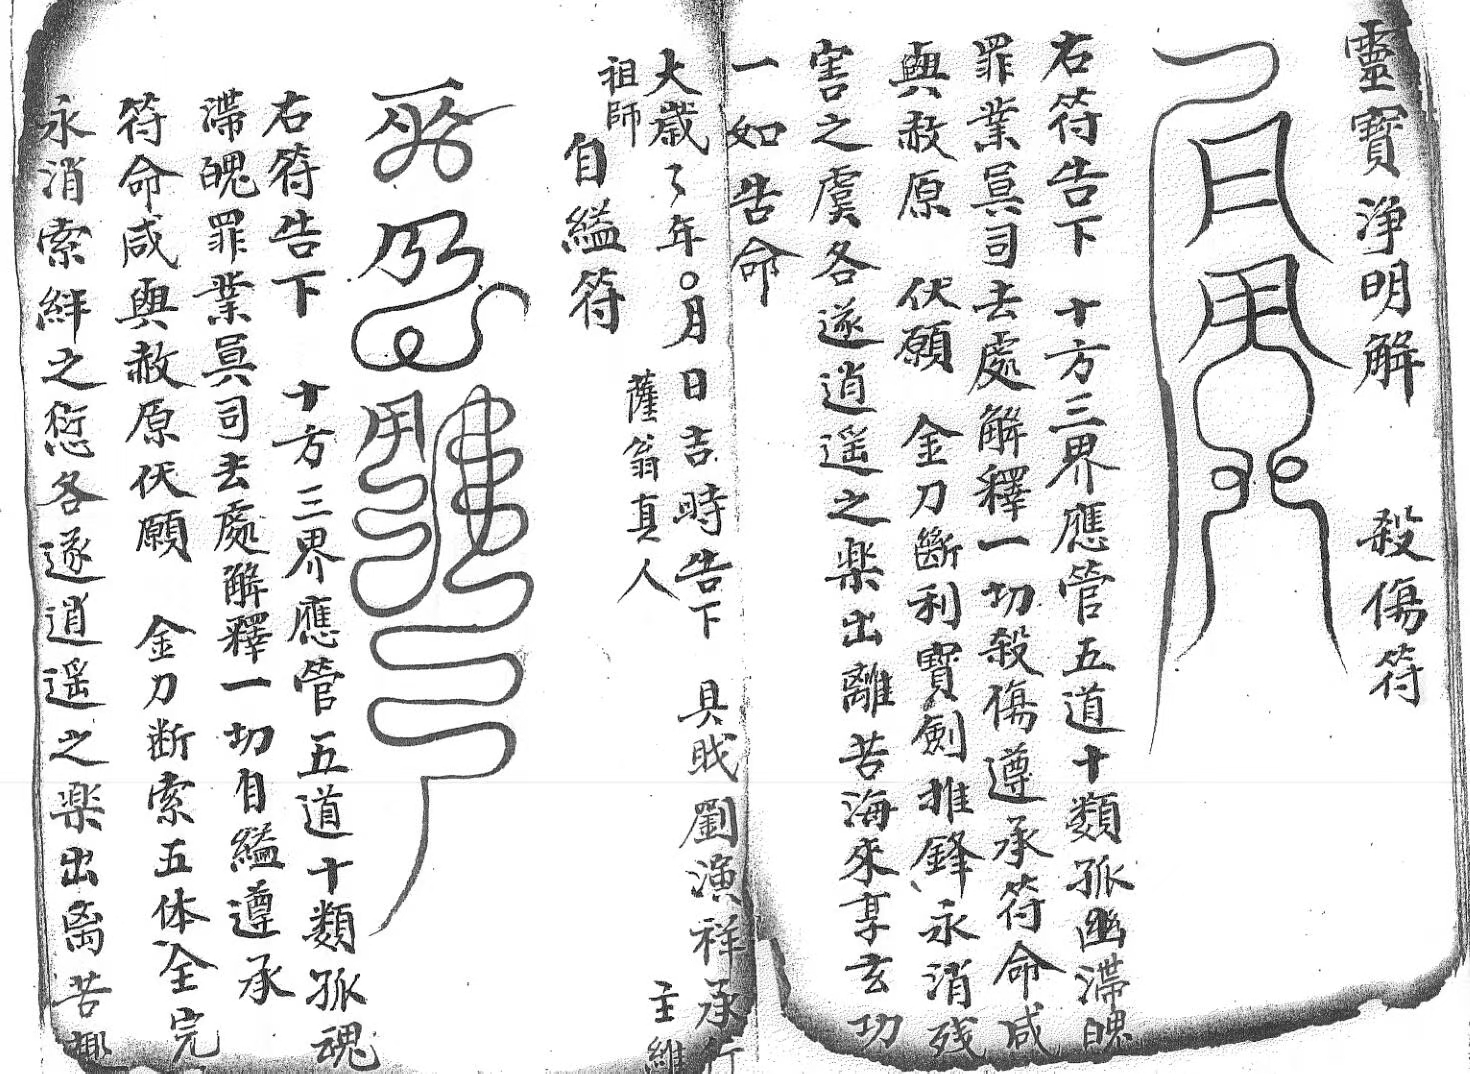 靈寶淨明解 殺傷符
右符告下 十方三界應管五道十類孤幽滯魄
罪業冥司去處解釋一切殺傷遵承符命咸
與赦原 伏願 金刀斷利寶劍摧鋒永消残
害之虞各遂逍遥之楽出離苦海來享玄功
一如告命
大歲々年〇月日吉時告下 具 劉演祥承行
祖師 薩翁真人 主維
自縊符
右符告下 十方三界應管五道十類孤魂
滯魄罪業冥司去處解釋一切自縊遵承
符命咸與赦原伏願 金刀断索五体全完
永消索絆之愆各遂逍遥之楽出离苦